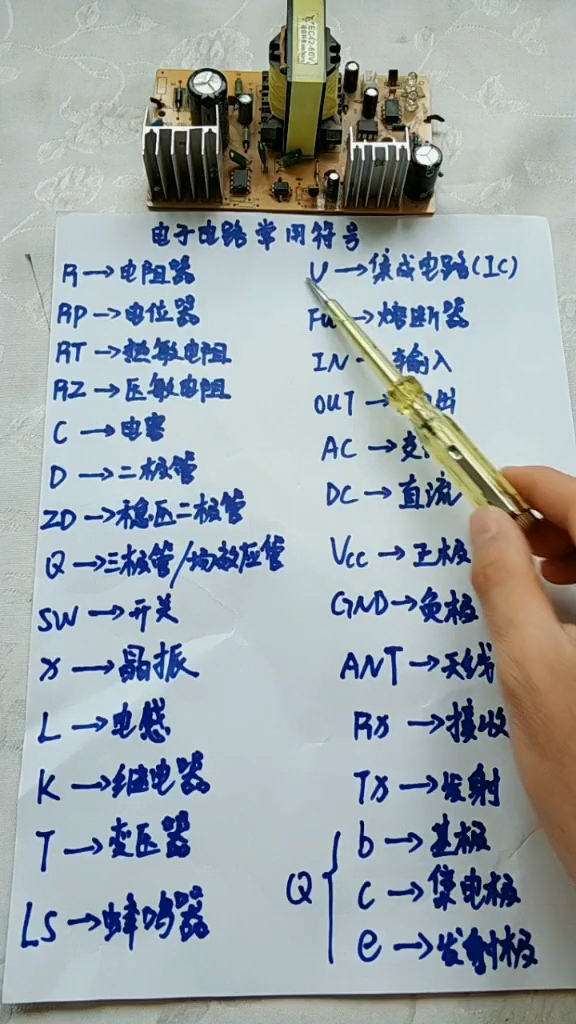 EC42-60V
电子电路常用符号
R→电阻器
RP→电位器
RT→热敏电阻
RZ→压敏电阻
C→电容
D→二极管
ZD→稳压二极管
Q→三极管/场效应管
SW→开关
X→晶振
L→电感
K→继电器
T→变压器
LS→蜂鸣器
U→集成电路(IC)
FU→熔断器
IN→输入
OUT→出
AC→交
DC→直流
Vcc→正极
GND→负极
ANT→天线
RX→接收
TX→发射
Q
b→基极
c→集电极
e→发射极